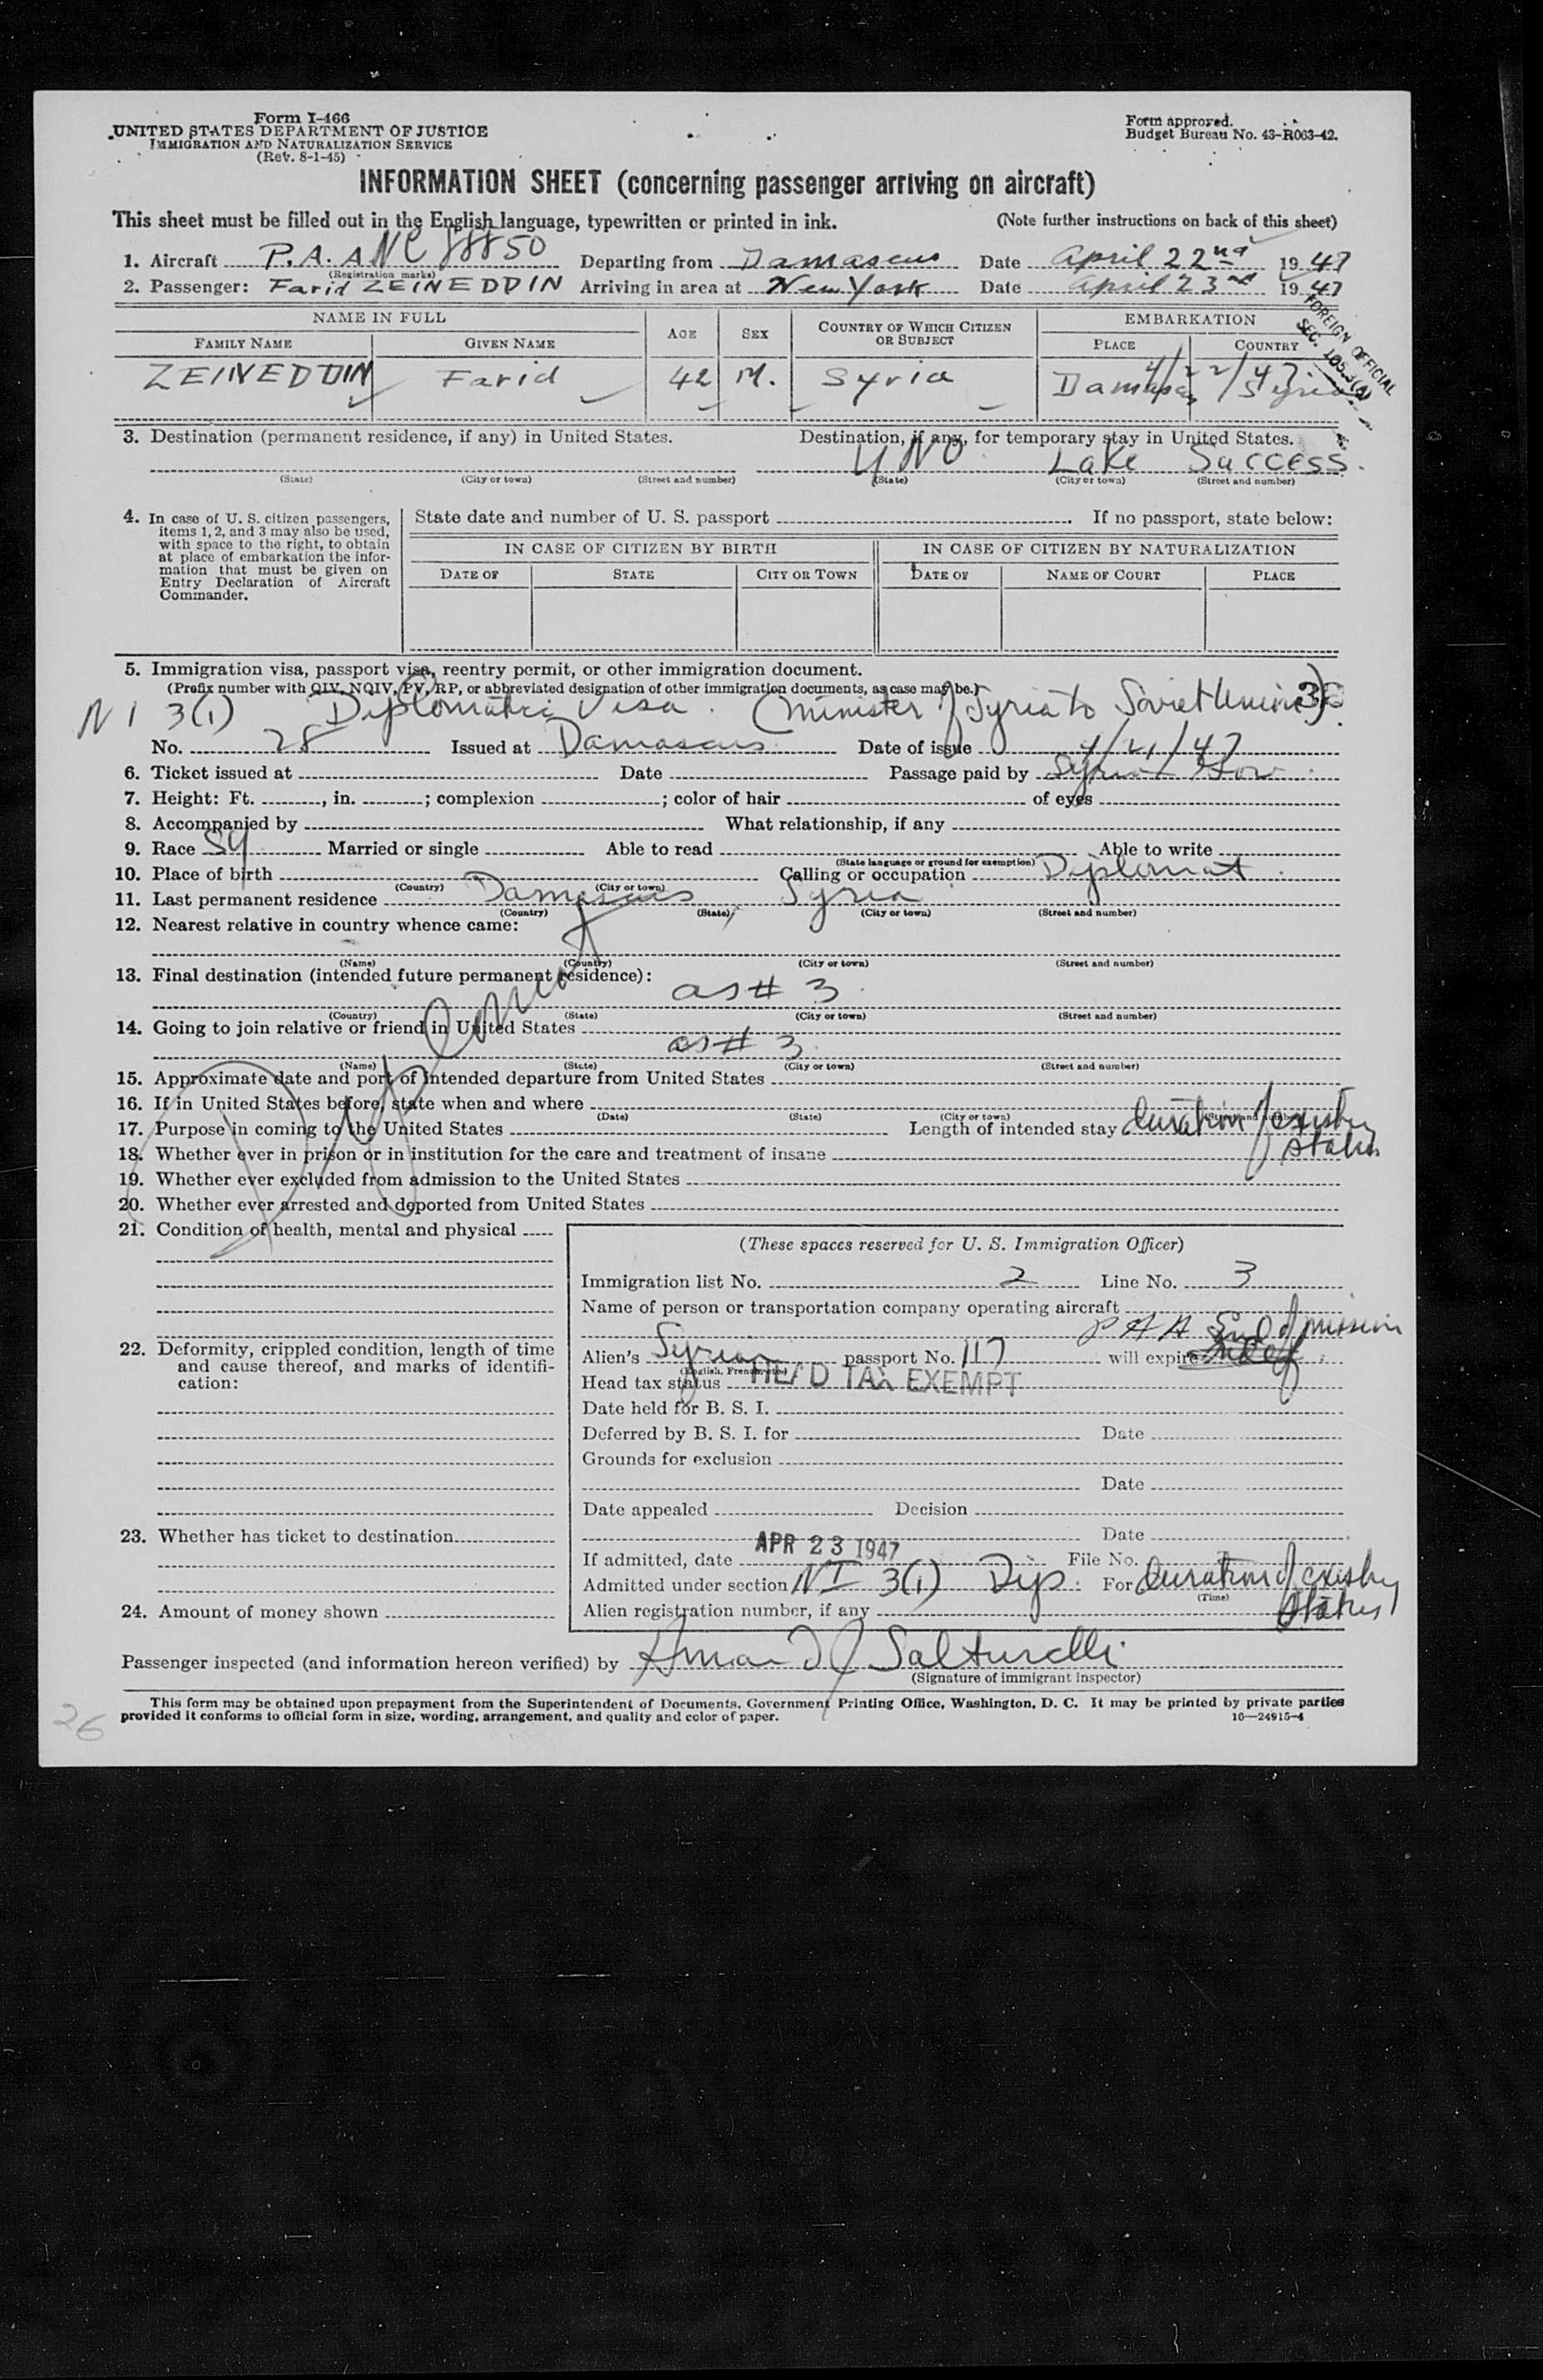 Form I-466
UNITED STATES DEPARTMENT OF JUSTICE
IMMIGRATION AND NATURALIZATION SERVICE
(Rev. 8-1-45)
Form approved.
Budget Bureau No. 43-R063-42.
INFORMATION SHEET (concerning passenger arriving on aircraft)
This sheet must be filled out in the English language, typewritten or printed in ink. (Note further instructions on back of this sheet)
1. Aircraft P.A.A NC 88850 Departing from Damascus Date April 22nd 1947
(Registration marks)
2. Passenger: Farid ZEINEDDIN Arriving in area at New York Date April 23rd 1947
FOREIGN OFFICIAL
NAME IN FULL AGE SEX COUNTRY OF WHICH CITIZEN OR SUBJECT EMBARKATION
FAMILY NAME GIVEN NAME PLACE COUNTRY
ZEINEDDIN Farid 42 M. Syria Damascus Syria
4/22/47
3. Destination (permanent residence, if any) in United States. Destination, if any, for temporary stay in United States.
UNO Lake Success.
(State) (City or town) (Street and number) (State) (City or town) (Street and number)
4. In case of U. S. citizen passengers, items 1, 2, and 3 may also be used, with space to the right, to obtain at place of embarkation the information that must be given on Entry Declaration of Aircraft Commander.
State date and number of U. S. passport If no passport, state below:
IN CASE OF CITIZEN BY BIRTH IN CASE OF CITIZEN BY NATURALIZATION
DATE OF STATE CITY OR TOWN DATE OF NAME OF COURT PLACE
5. Immigration visa, passport visa, reentry permit, or other immigration document.
(Prefix number with QIV, NQIV, PV, RP, or abbreviated designation of other immigration documents, as case may be.)
NI 3(1) Diplomatic Visa. (Minister of Syria to Soviet Union)
No. 28 Issued at Damascus Date of issue 4/21/47
6. Ticket issued at Date Passage paid by Syrian Gov
7. Height: Ft. , in. ; complexion ; color of hair of eyes
8. Accompanied by What relationship, if any
9. Race Sy Married or single Able to read Able to write
(State language or ground for exemption)
10. Place of birth Calling or occupation Diplomat
(Country) (City or town)
11. Last permanent residence Damascus Syria
(Country) (State) (City or town) (Street and number)
12. Nearest relative in country whence came:
(Name) (Country) (City or town) (Street and number)
13. Final destination (intended future permanent residence):
as # 3
(Country) (State) (City or town) (Street and number)
14. Going to join relative or friend in United States
as # 3
(Name) (State) (City or town) (Street and number)
Diplomat
15. Approximate date and port of intended departure from United States
16. If in United States before, state when and where
(Date) (State) (City or town) (Street and number)
17. Purpose in coming to the United States Length of intended stay duration of existing status
18. Whether ever in prison or in institution for the care and treatment of insane
19. Whether ever excluded from admission to the United States
20. Whether ever arrested and deported from United States
21. Condition of health, mental and physical
22. Deformity, crippled condition, length of time and cause thereof, and marks of identification:
23. Whether has ticket to destination
24. Amount of money shown
(These spaces reserved for U. S. Immigration Officer)
Immigration list No. 2 Line No. 3
Name of person or transportation company operating aircraft
P A A
End of mission
Alien's Syrian passport No. 117 will expire Indef
(English, French, etc.)
Head tax status HEAD TAX EXEMPT
Date held for B. S. I.
Deferred by B. S. I. for Date
Grounds for exclusion
Date
Date appealed Decision
Date
If admitted, date APR 23 1947 File No.
Admitted under section NI 3(1) Dip. For duration of existing status
(Time)
Alien registration number, if any
Passenger inspected (and information hereon verified) by Armand J Salturelli
(Signature of immigrant inspector)
This form may be obtained upon prepayment from the Superintendent of Documents, Government Printing Office, Washington, D. C. It may be printed by private parties
provided it conforms to official form in size, wording, arrangement, and quality and color of paper. 16—24915-4
26